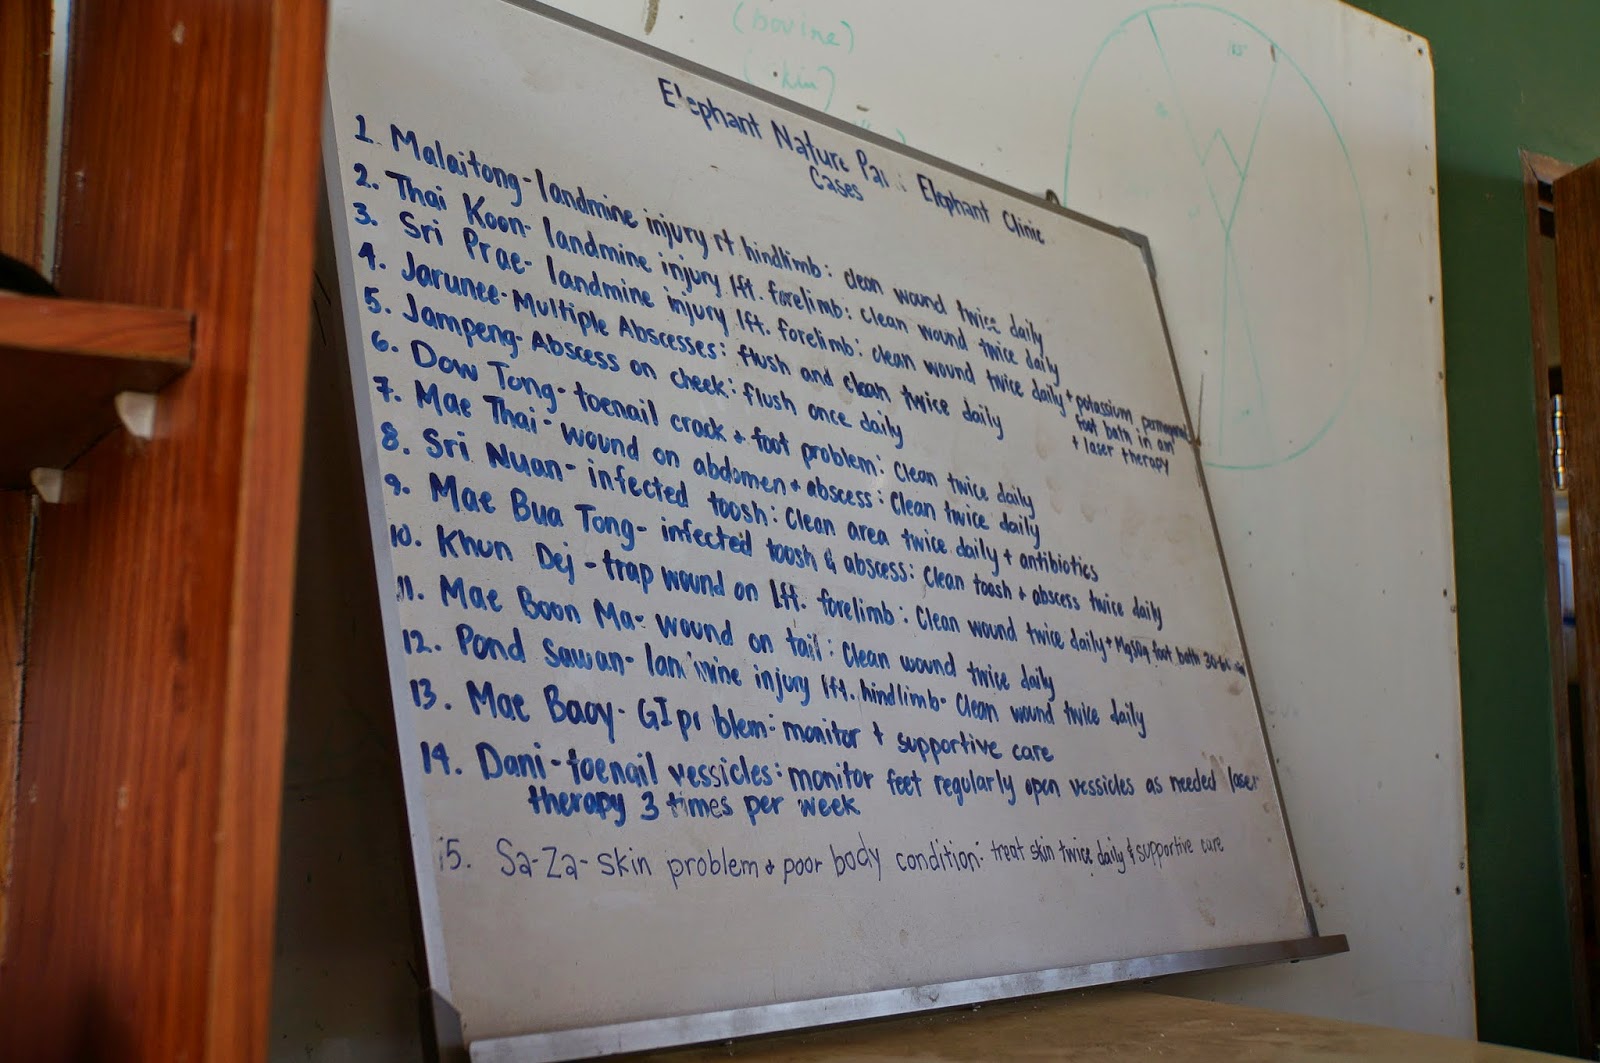 (bovine)
Elephant Nature Pa Elephant Clinic
Cases
1. Malaitong - landmine injury rt hindlimb: clean wound twice daily
2. Thai Koon - landmine injury lft. forelimb: clean wound twice daily
3. Sri Prae - landmine injury lft. forelimb: clean wound twice daily + potassium
foot bath in am
+ laser therapy
4. Jarunee - Multiple Abscesses: flush and clean twice daily
5. Jampeng - Abscess on cheek: flush once daily
6. Dow Tong - toenail crack + foot problem: Clean twice daily
7. Mae Thai - wound on abdomen + abscess: Clean twice daily
8. Sri Nuan - infected toosh: Clean area twice daily + antibiotics
9. Mae Bua Tong - infected toosh & abscess: Clean toosh + abscess twice daily
10. Khun Dej - trap wound on lft. forelimb: Clean wound twice daily + MgSO4 foot bath
11. Mae Boon Ma - wound on tail: Clean wound twice daily
12. Pond Sawan - lan mine injury lft. hindlimb - Clean wound twice daily
13. Mae Baoy - GI p blem: monitor + supportive care
14. Dani - toenail vessicles: monitor feet regularly open vessicles as needed laser
therapy 3 times per week
15. Sa-Za - skin problem + poor body condition: treat skin twice daily & supportive care